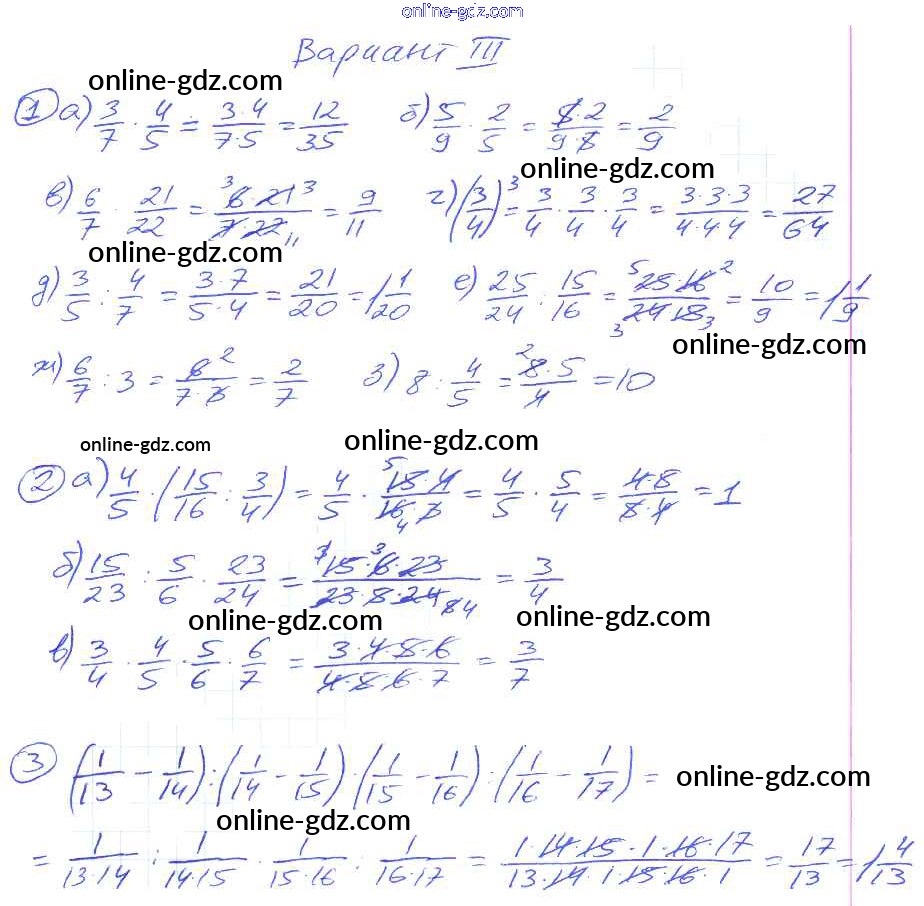 online-gdz.com
Вариант III
online-gdz.com
① а) 3/7 · 4/5 = 3·4/7·5 = 12/35 б) 5/9 · 2/5 = 5·2/9·5 = 2/9
online-gdz.com
в) 6/7 · 21/22 = ³6·21³/7·22₁₁ = 9/11 г) (3/4)³ = 3/4 · 3/4 · 3/4 = 3·3·3/4·4·4 = 27/64
online-gdz.com
д) 3/5 : 4/7 = 3·7/5·4 = 21/20 = 1 1/20 е) 25/24 : 15/16 = ⁵25·16²/₃24·15₃ = 10/9 = 1 1/9
online-gdz.com
ж) 6/7 : 3 = 6²/7·3 = 2/7 з) 8 : 4/5 = ²8·5/4 = 10
online-gdz.com online-gdz.com
② а) 4/5 · (15/16 : 3/4) = 4/5 · ⁵15·4/16₄·3 = 4/5 · 5/4 = 4·5/5·4 = 1
б) 15/23 : 5/6 · 23/24 = ³15·6·23/23·5·24₈₄ = 3/4
online-gdz.com online-gdz.com
в) 3/4 · 4/5 · 5/6 · 6/7 = 3·4·5·6/4·5·6·7 = 3/7
③ (1/13 − 1/14) : (1/14 − 1/15) · (1/15 − 1/16) : (1/16 − 1/17) =
online-gdz.com
online-gdz.com
= 1/13·14 : 1/14·15 · 1/15·16 : 1/16·17 = 1·14·15·1·16·17/13·14·1·15·16·1 = 17/13 = 1 4/13